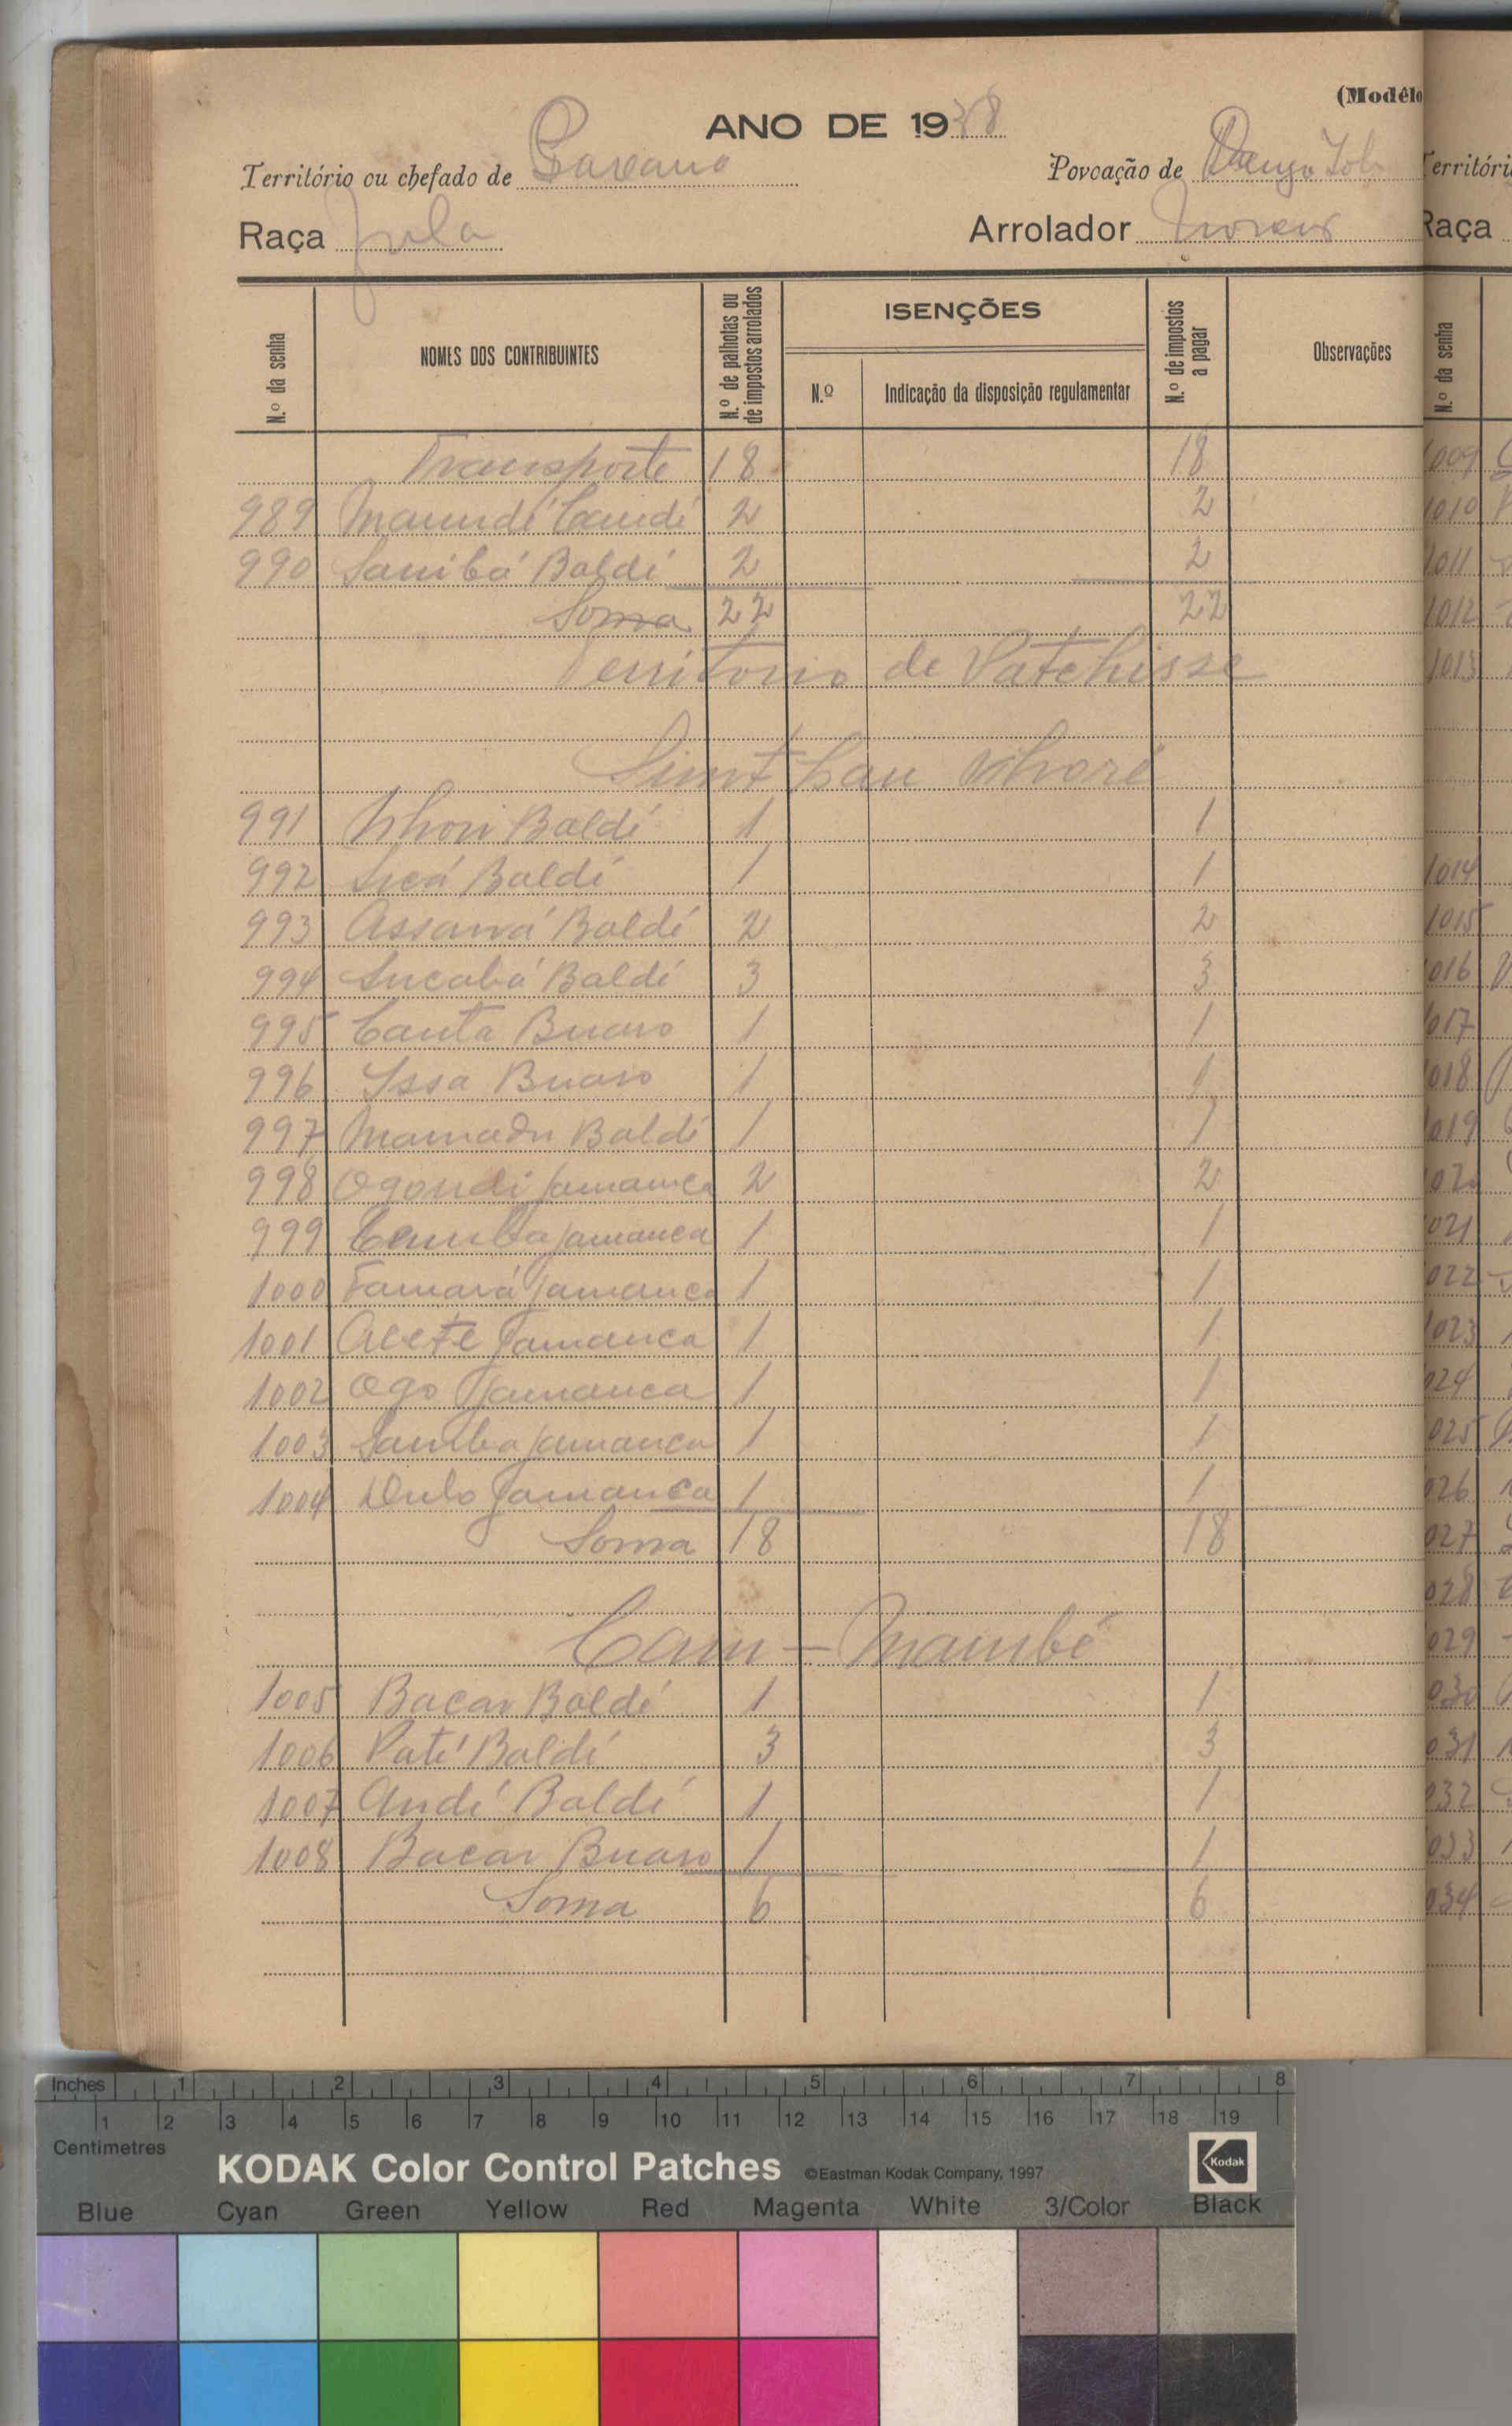 (Modêlo
ANO DE 1938
Território ou chefado de
Povoação de
Raça Fula
Arrolador
N.º da senha
NOMES DOS CONTRIBUINTES
N.º de palhotas ou de impostos arrolados
ISENÇÕES
N.º
Indicação da disposição regulamentar
N.º de impostos a pagar
Observações
Transporte 18 18
989 2 2
990 Sambá Baldé 2 2
Soma 22 22
Territorio de Patchisse
991 Baldé 1 1
992 Baldé 1 1
993 Baldé 2 2
994 Baldé 3 3
995 Canta Buaro 1 1
996 Issa Buaro 1 1
997 Mamadu Baldé 1 1
998 Jamanca 2 2
999 Jamanca 1 1
1000 Jamanca 1 1
1001 Jamanca 1 1
1002 Ogo Jamanca 1 1
1003 Samba Jamanca 1 1
1004 Jamanca 1 1
Soma 18 18
Cam - Mambé
1005 Bacar Baldé 1 1
1006 Paté Baldé 3 3
1007 Baldé 1 1
1008 Bacar Buaro 1 1
Soma 6 6
Território
Raça
N.º da senha
1009
1010
1011
1012
1013
1014
1015
016
017
018
019
021
022
023
024
025
026
027
028
029
030
031
032
033
034
Inches 1 2 3 4 5 6 7 8
1 2 3 4 5 6 7 8 9 10 11 12 13 14 15 16 17 18 19
Centimetres
KODAK Color Control Patches ©Eastman Kodak Company, 1997 Kodak
Blue Cyan Green Yellow Red Magenta White 3/Color Black